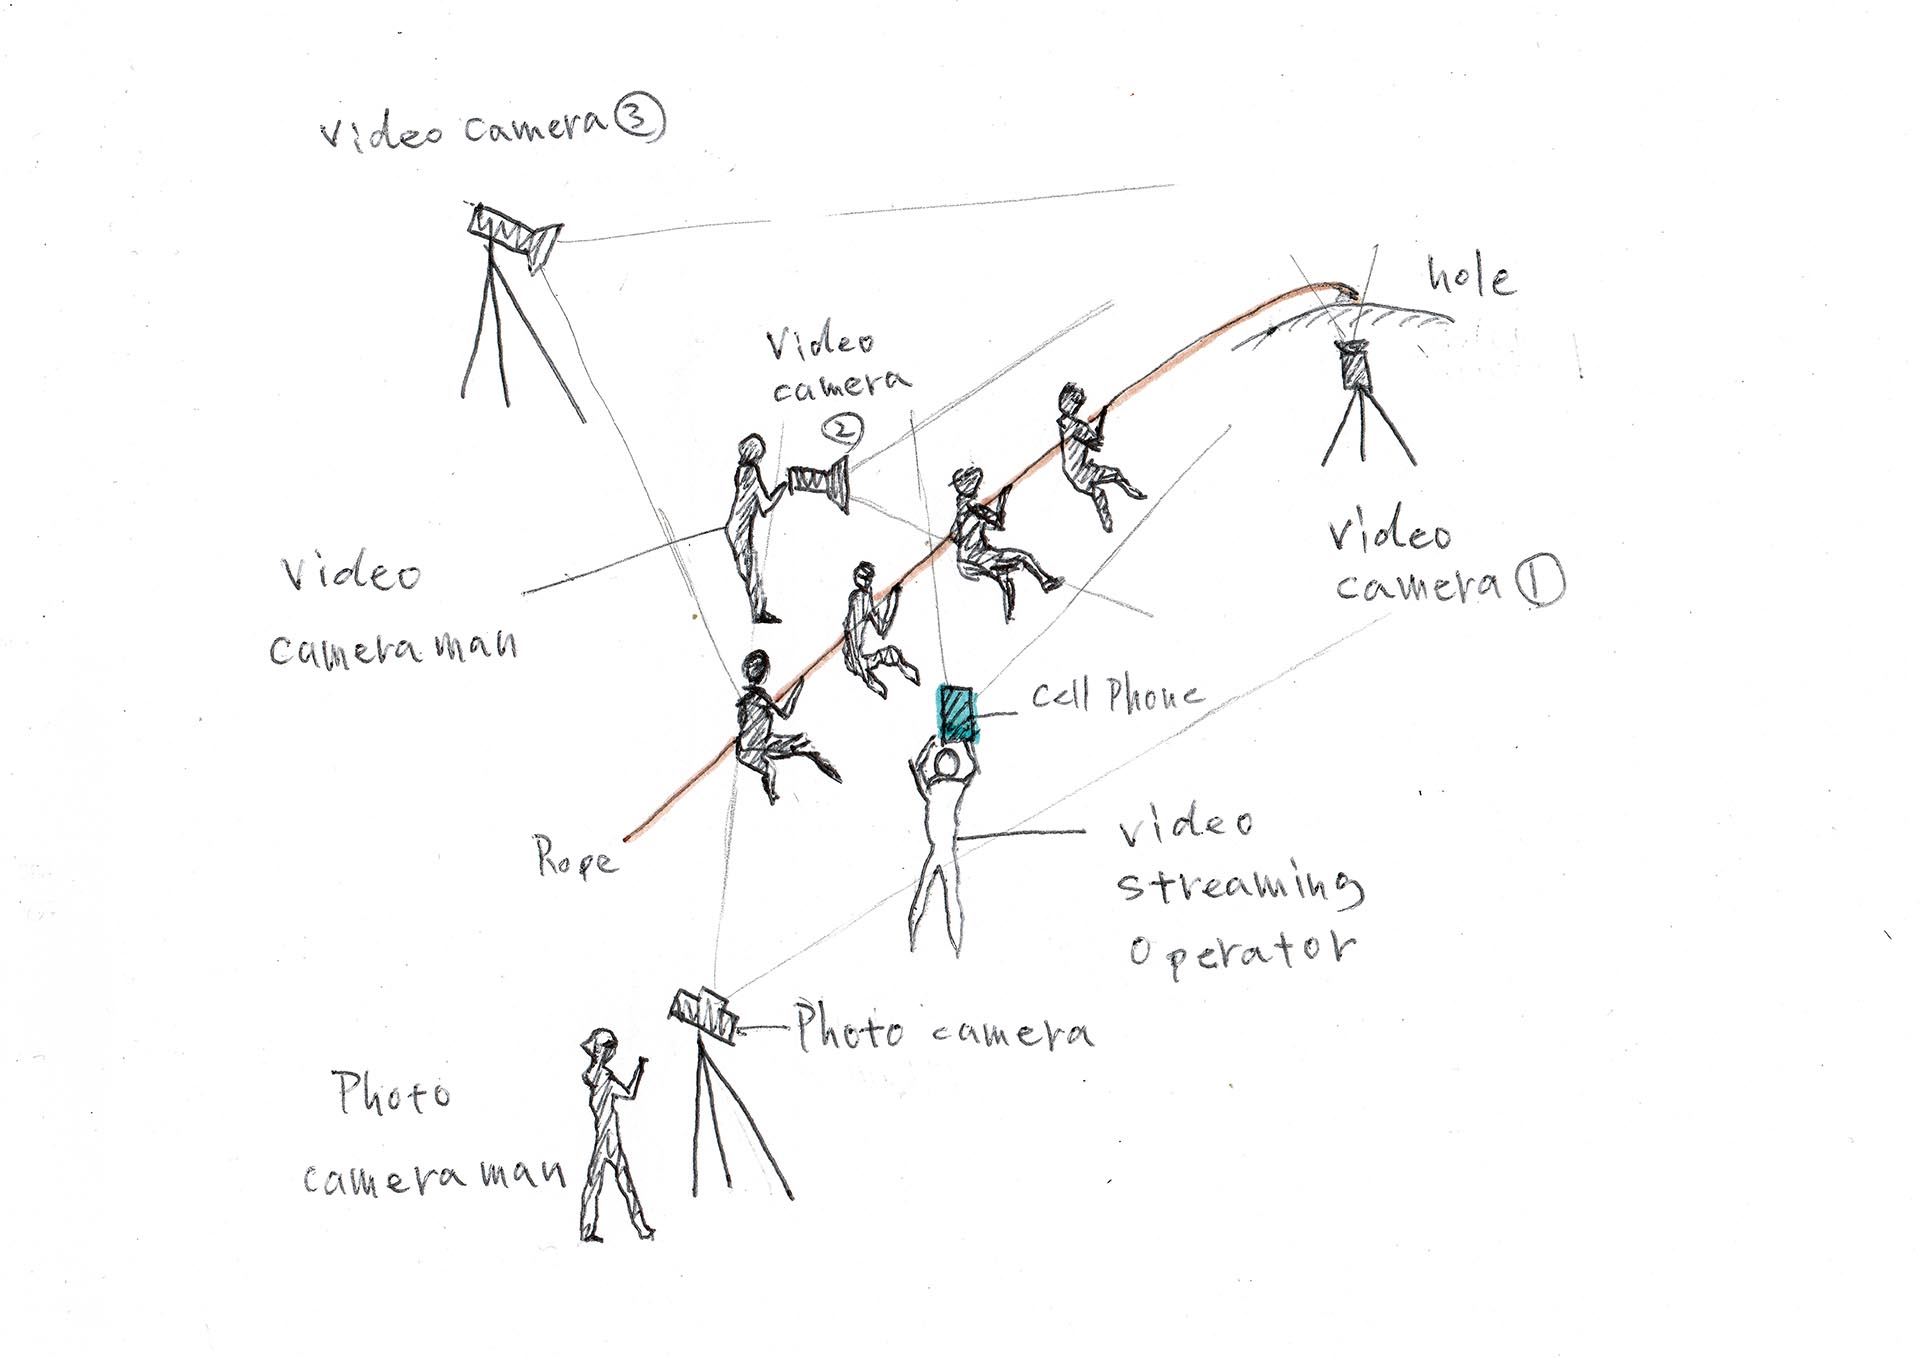 Video camera ③
hole
Video
camera
②
Video
camera ①
Video
cameraman
Cell Phone
Rope
Video
streaming
operator
Photo camera
Photo
cameraman